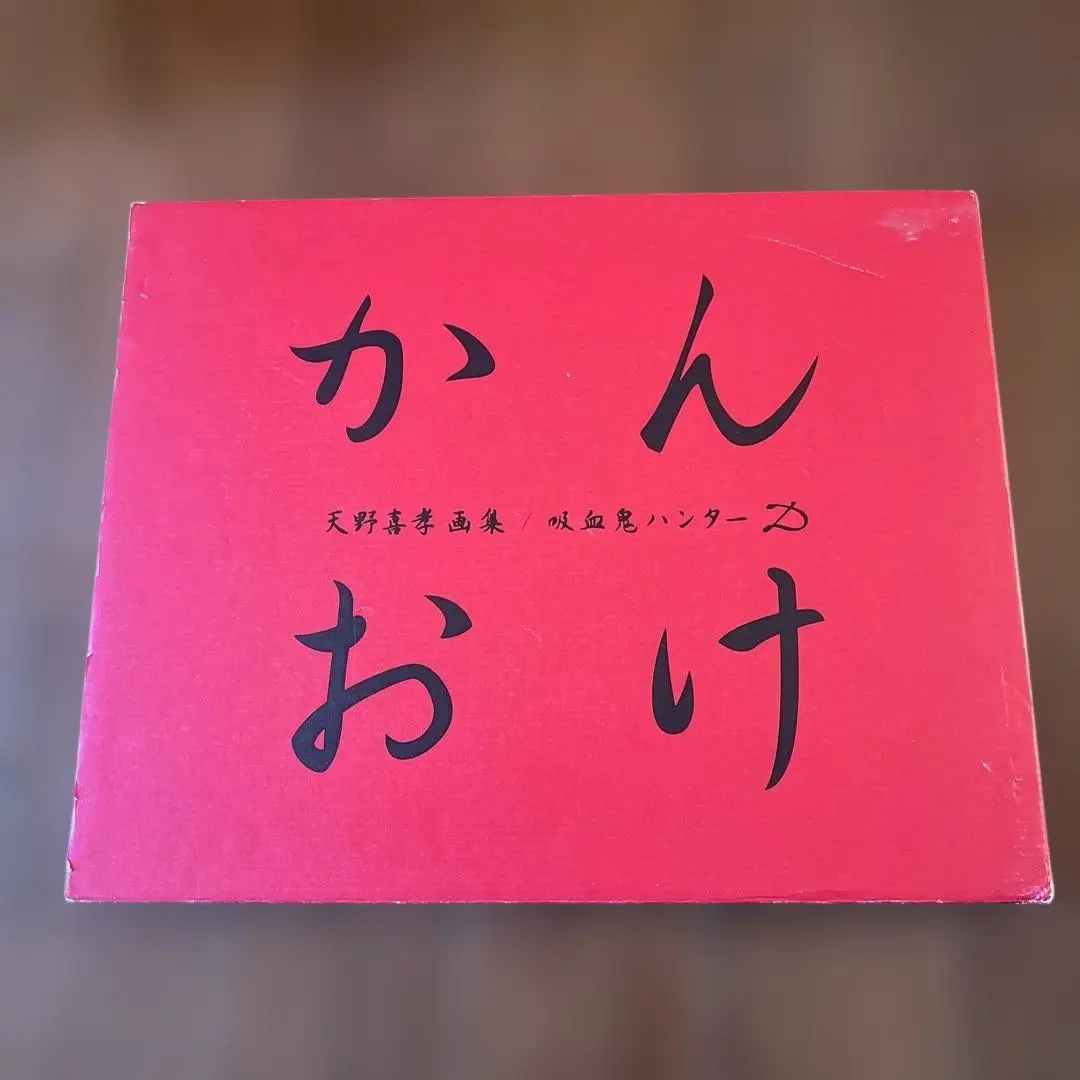 かん
天野喜孝画集 / 吸血鬼ハンターD
おけ